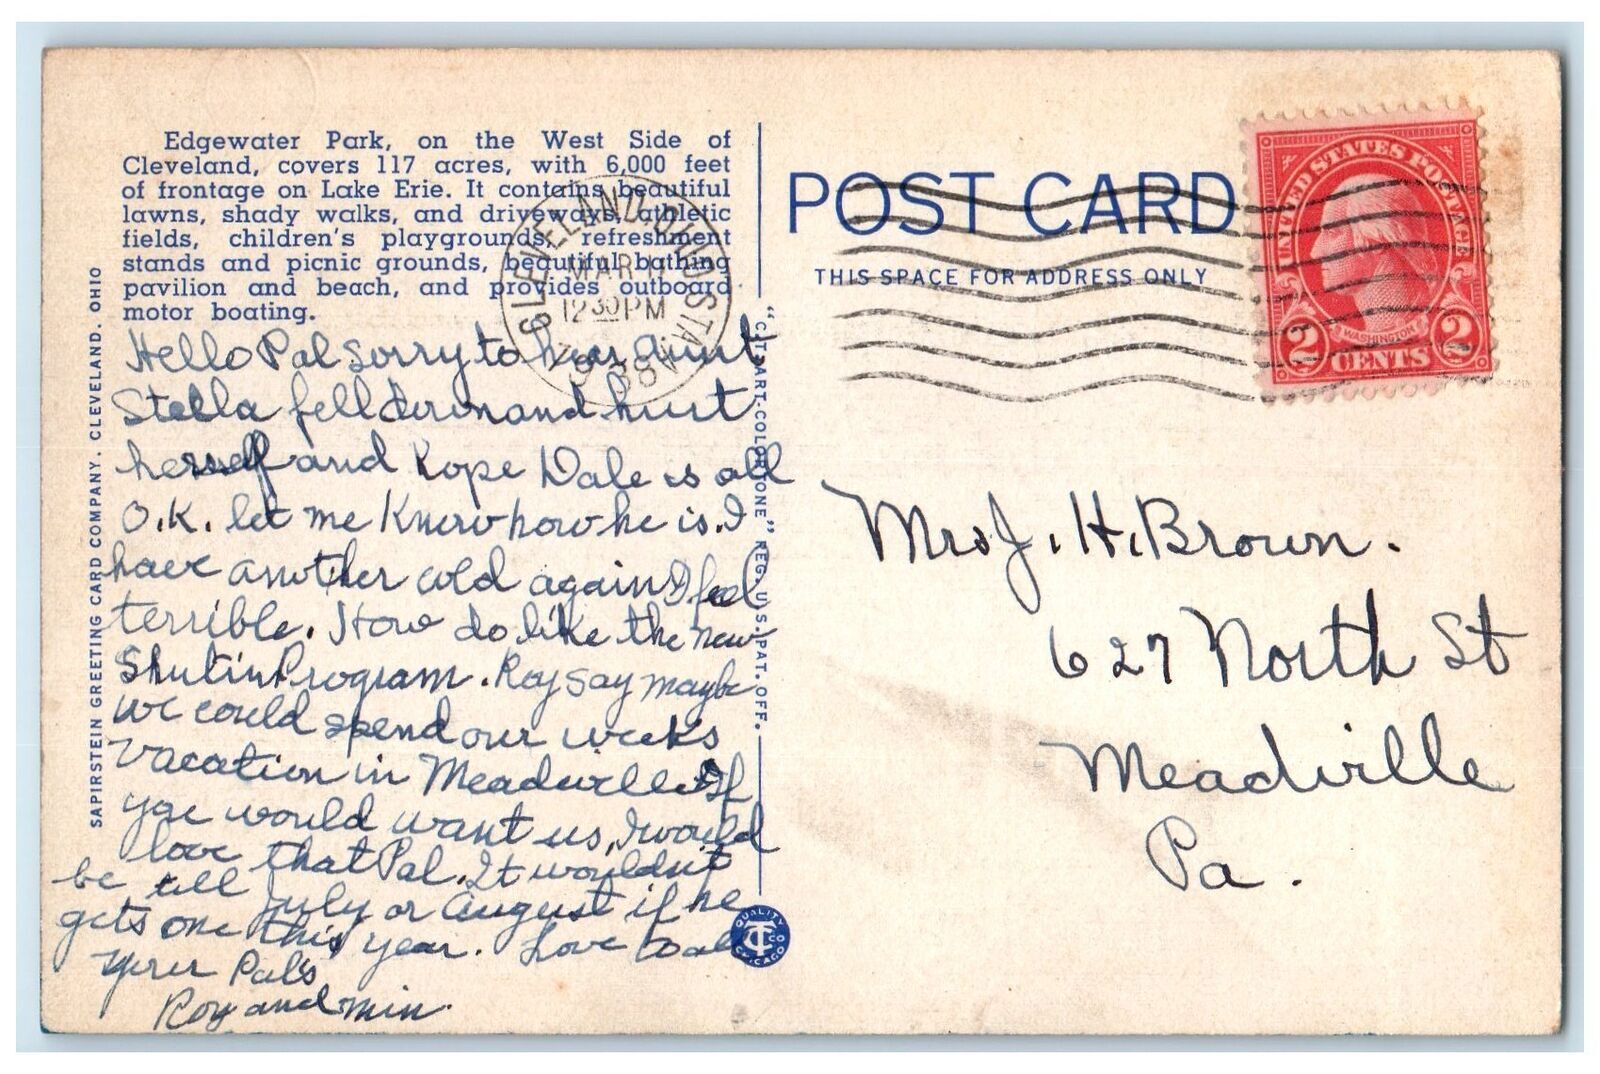 Edgewater Park, on the West Side of
Cleveland, covers 117 acres, with 6,000 feet
of frontage on Lake Erie. It contains beautiful
lawns, shady walks, and driveways, athletic
fields, children's playgrounds, refreshment
stands and picnic grounds, beautiful bathing
pavilion and beach, and provides outboard
motor boating.
Hello Pal Sorry to hear aunt
Stella fell down and hurt
herself and hope Dale is all
O.K. let me Know how he is. I
have another cold again I feel
terrible. How do like the new
Shutin Program. Roy say maybe
we could spend our weeks
vacation in Meadville If
you would want us, I would
love that Pal. It wouldn't
be till July or August if he
gets one this year. Love to all
your Pals
Roy and Min
SAPIRSTEIN GREETING CARD COMPANY, CLEVELAND, OHIO
"C.T. ART-COLORTONE" REG. U.S. PAT. OFF.
QUALITY
CT CO
CHICAGO
CLEVELAND, OHIO STA
MAR
12 30 PM
1938
POST CARD
THIS SPACE FOR ADDRESS ONLY
UNITED STATES POSTAGE
WASHINGTON
2 CENTS 2
Mrs J. H. Brown.
627 North St
Meadville
Pa.